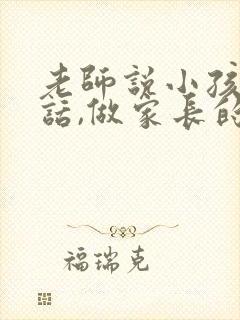 老師說小孩
話,做家長的
福瑞克